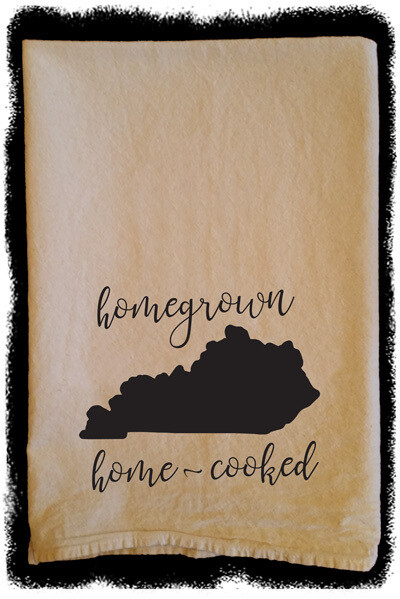 homegrown
home ~ cooked